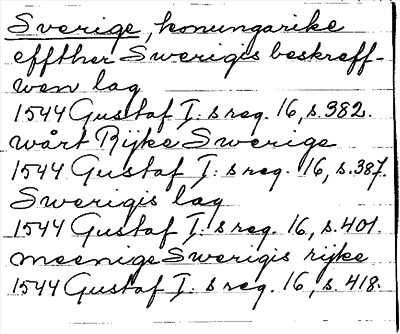 Sverige, konungarike
effther Swerigis beskreff-
wen lag
1544 Gustaf I:s reg. 16, s. 382.
wårt Rijke Swerige
1544 Gustaf I:s reg. 16, s. 387.
Swerigis lag
1544 Gustaf I:s reg. 16, s. 401.
meenige Swerigis rijke
1544 Gustaf I:s reg. 16, s. 418.